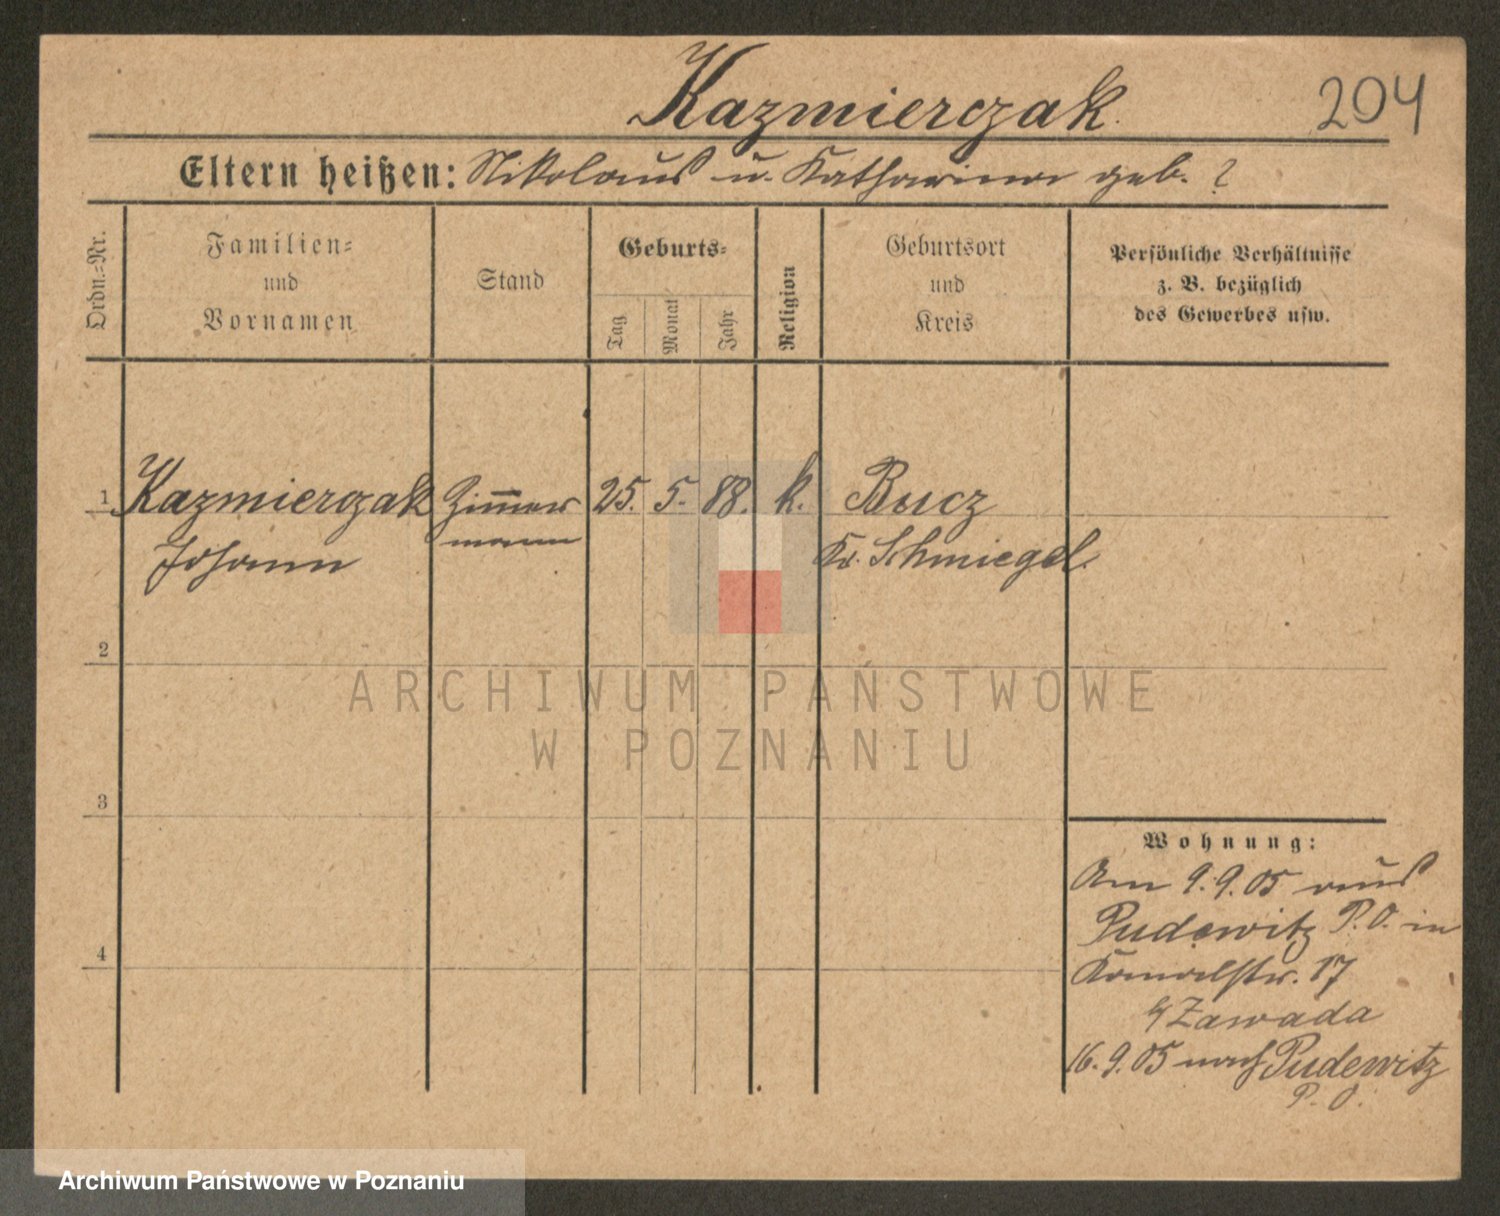 Kazmierczak
204
Eltern heißen: Nikolaus u. Katharina geb. ?
Ordn.=Nr.
Familien=
und
Vornamen
Stand
Geburts=
Tag
Monat
Jahr
Religion
Geburtsort
und
Kreis
Persönliche Verhältnisse
z. B. bezüglich
des Gewerbes usw.
1 Kazmierczak Zim̅er 25. 5. 88. k. Bucz
Johann mann Kr. Schmiegel.
2
ARCHIWUM PAŃSTWOWE
W POZNANIU
3
Wohnung:
Am 9.9.05 aus
Pudewitz P.O. in
Kanalstr. 17
b/Zawada
4
16.9.05 nach Pudewitz
P.O.
Archiwum Państwowe w Poznaniu